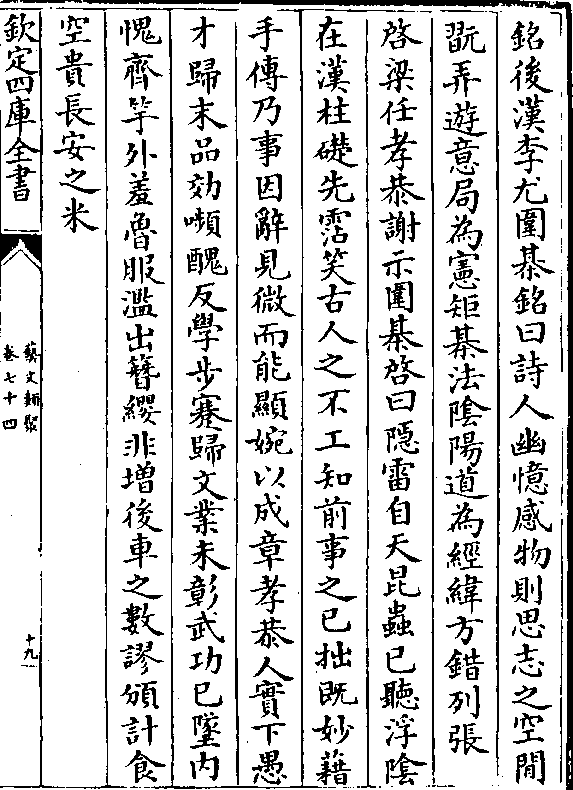 銘後漢李尤圍棊銘曰詩人幽憶感物則思志之空閒
翫弄遊意局為憲矩棊法陰陽道為經緯方錯列張
啓梁任孝恭謝示圍棊啓曰隱雷自天昆蟲已聽浮陰
在漢柱礎先霑笑古人之不工知前事之已拙既妙藉
手傳乃事因辭見微而能顯婉以成章孝恭人實下愚
才歸末品効嚬醜反學步蹇歸文業未彰武功已墜内
愧齊竽外羞魯服濫出簪纓非增後車之數謬頒計食
空貴長安之米
欽定四庫全書
藝文類聚
卷七十四
十九